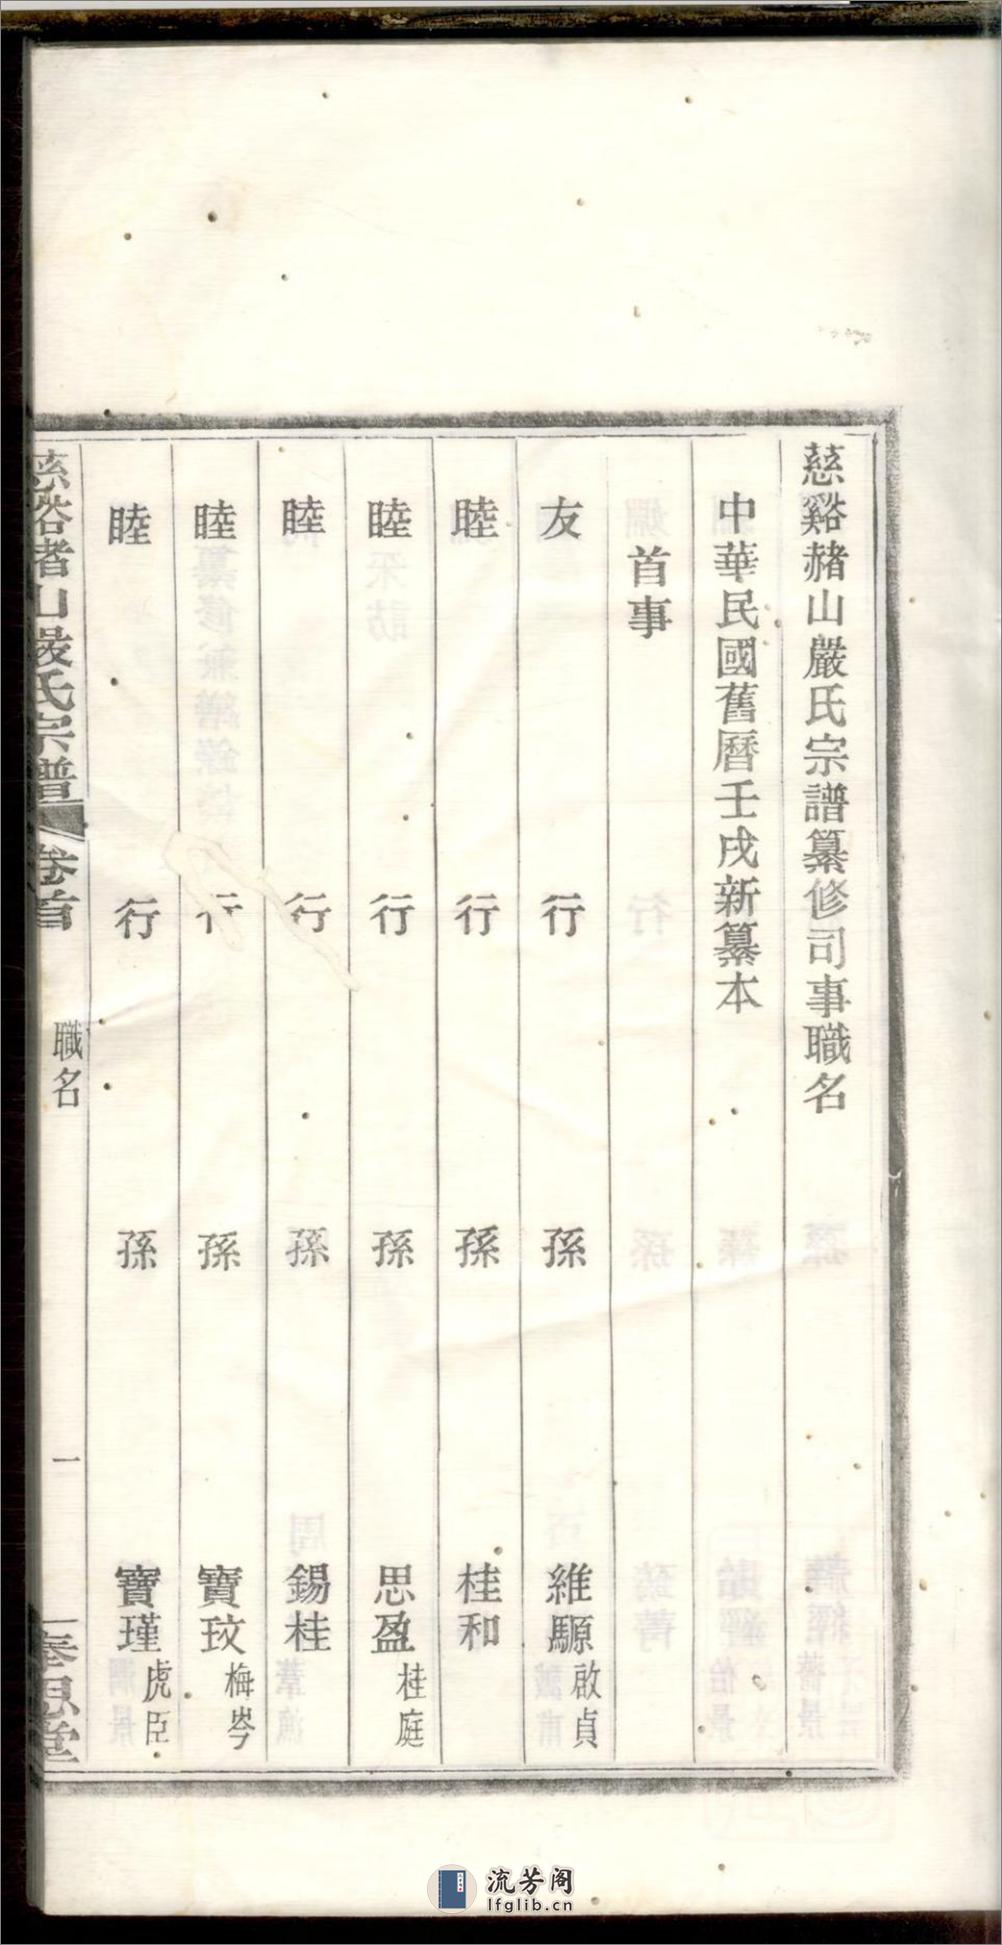 慈谿赭山嚴氏宗譜纂修司事職名
中華民國舊曆壬戌新纂本
首事
友行孫維騵啟貞
睦行孫桂和
睦行孫思盈桂庭
睦行孫錫桂
睦行孫寶玟梅岑
睦行孫寶瑾虎臣
慈谿赭山嚴氏宗譜 卷首 職名 一 奉思堂
流芳阁
lfglib.cn